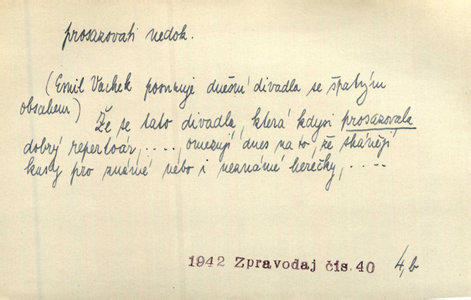 prosazovati nedok.
(Emil Vachek poznuje dnešní divadla se špatným
obsahem) Že se tato divadla, která kdysi prosazovala
dobrý repertoár, ...., omezují dnes na to, že shánějí
kusy pro známé nebo i neznámé herečky, ....
1942 Zpravodaj čís. 40 4,b